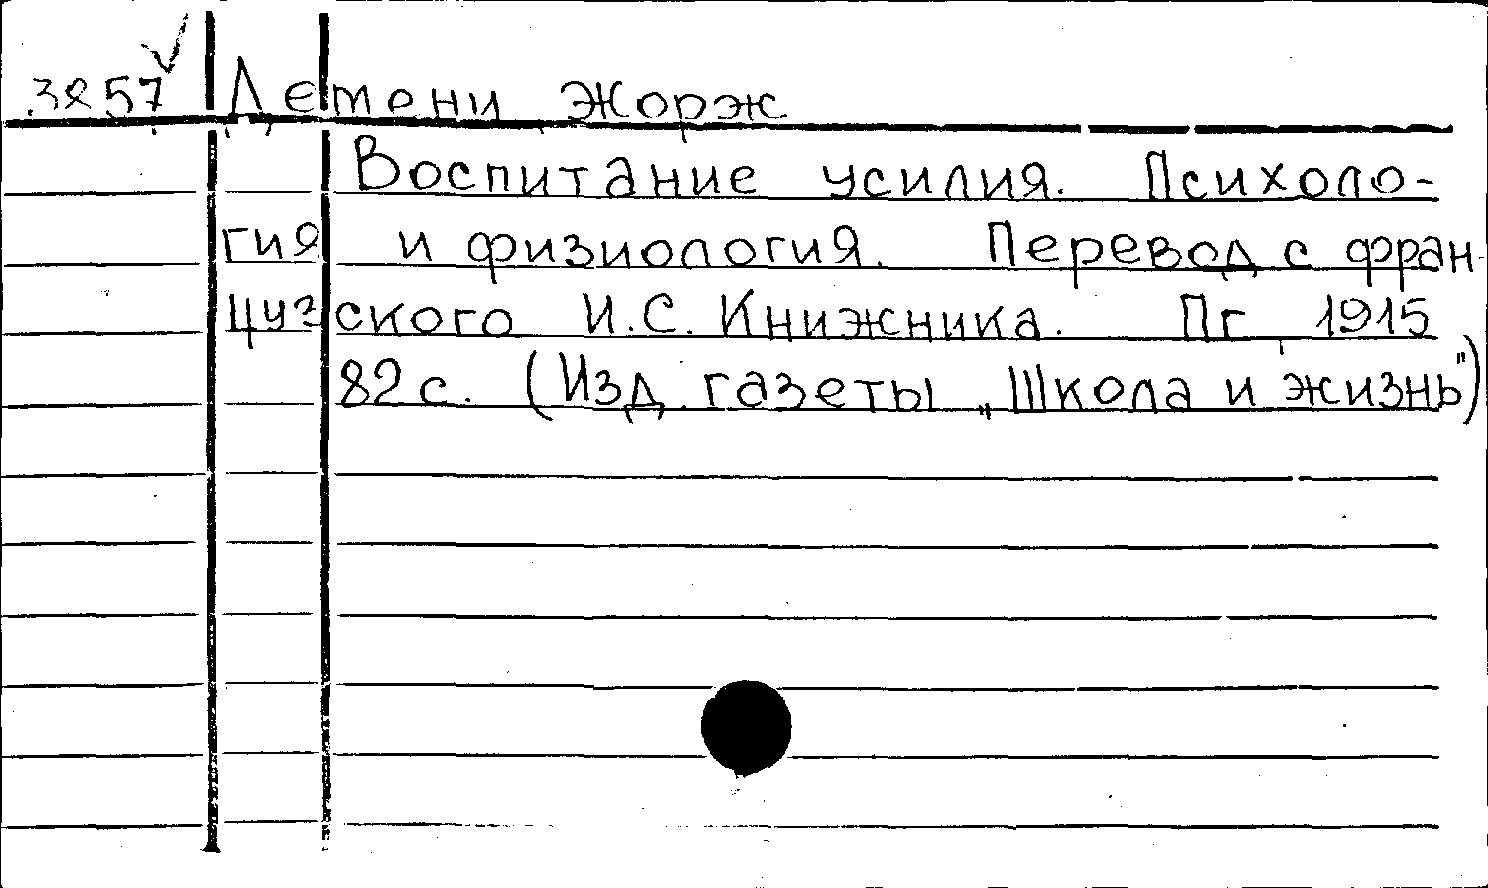 3257 Демени Жорж
Воспитание усилия. Психоло-
гия и физиология. Перевод с фран
цузского И.С. Книжника. Пг 1915
82 с. (Изд. газеты „Школа и жизнь")